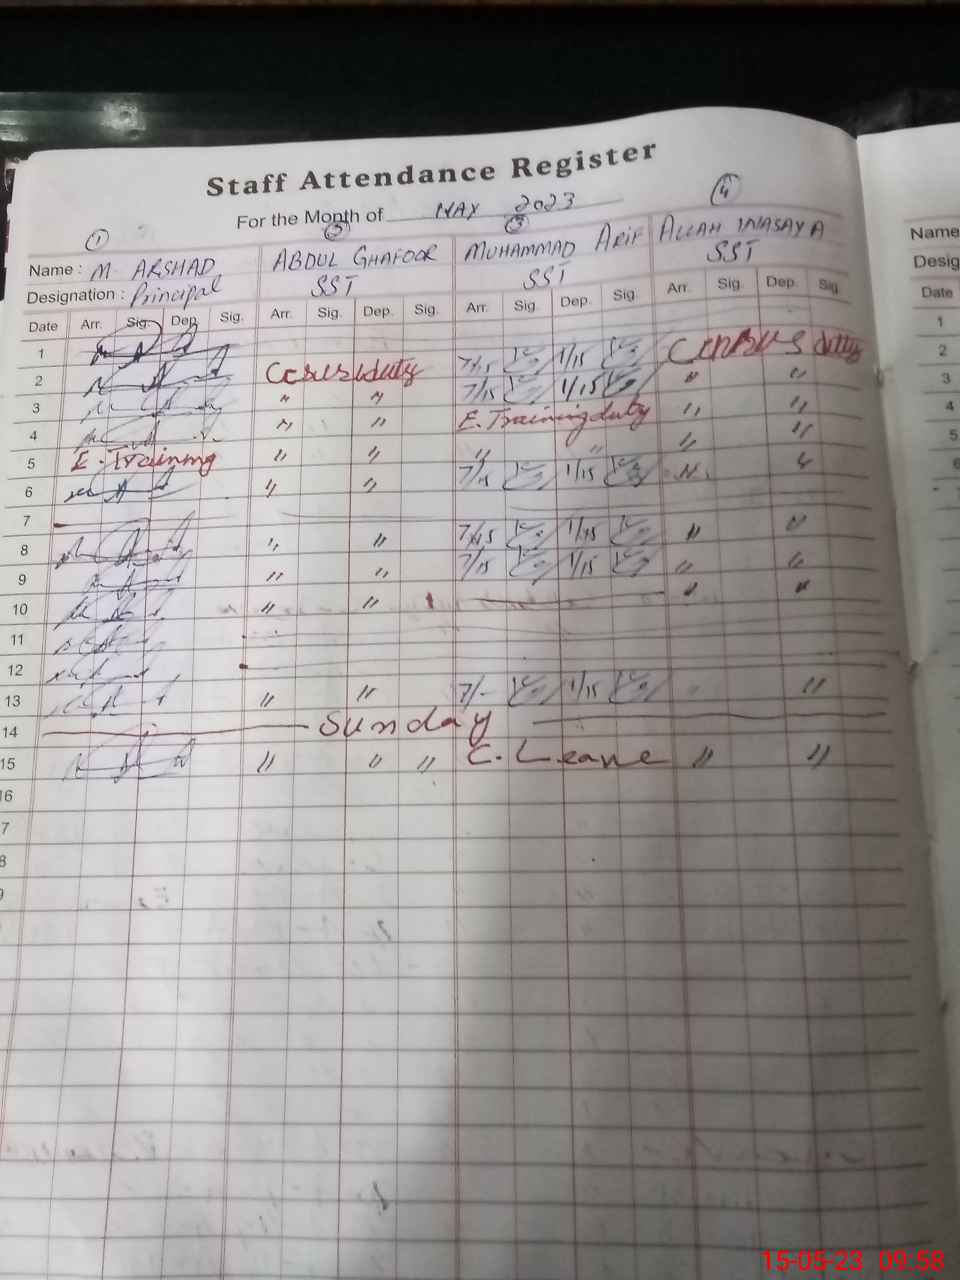 Staff Attendance Register
For the Month of MAY 2023
1 2 3 4
Name : M. ARSHAD ABDUL GHAFOOR MUHAMMAD ARIF ALLAH
Designation : Principal SST SST SST
Date Arr. Sig. Dep. Sig. Arr. Sig. Dep. Sig. Arr. Sig. Dep. Sig. Arr. Sig. Dep. Sig.
1
2 duty 7/15 1/15 Census duty
3 " " 7/15 1/15 " "
4 " " E. Training duty " "
5 E. Training " " " " " "
6 " " 7/15 1/15 " "
7
8 " " 7/15 1/15 " "
9 " " 7/15 1/15 " "
10 " " " "
11
12
13 " " 7/- 1/15 "
14 Sunday
15 " " " C. Leave " "
16
7
8
9
Name
Desig
Date
1
2
3
4
5
6
15-05-23 09:58